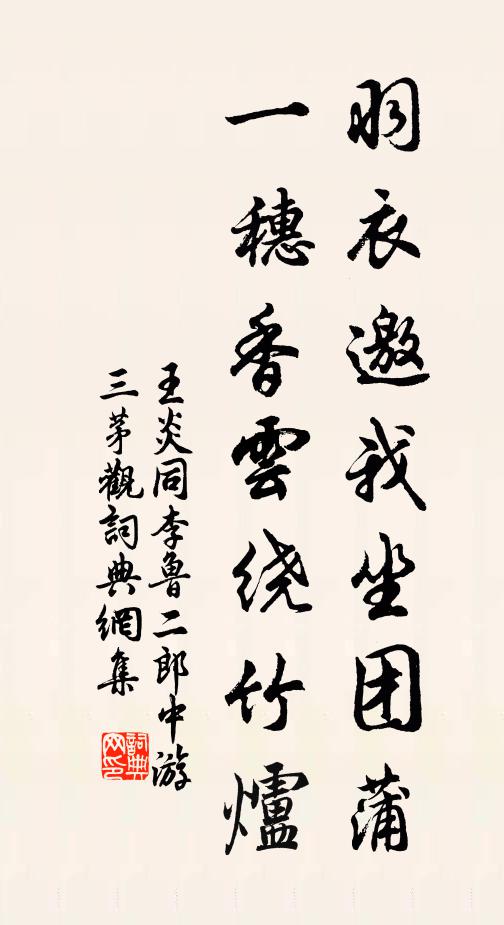 羽衣邀我坐团蒲
一穗香雲绕竹爐
王炎同李魯二郎中游
三茅觀詞典網集
詞典
网印